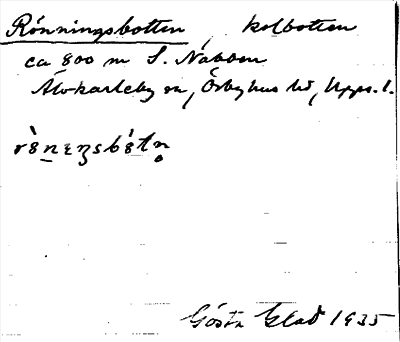 Rönningsbotten, kolbotten
ca 800 m S. Nabben
Älvkarleby sn, Örbyhus hd, Upps. l.
Gösta Glad 1935